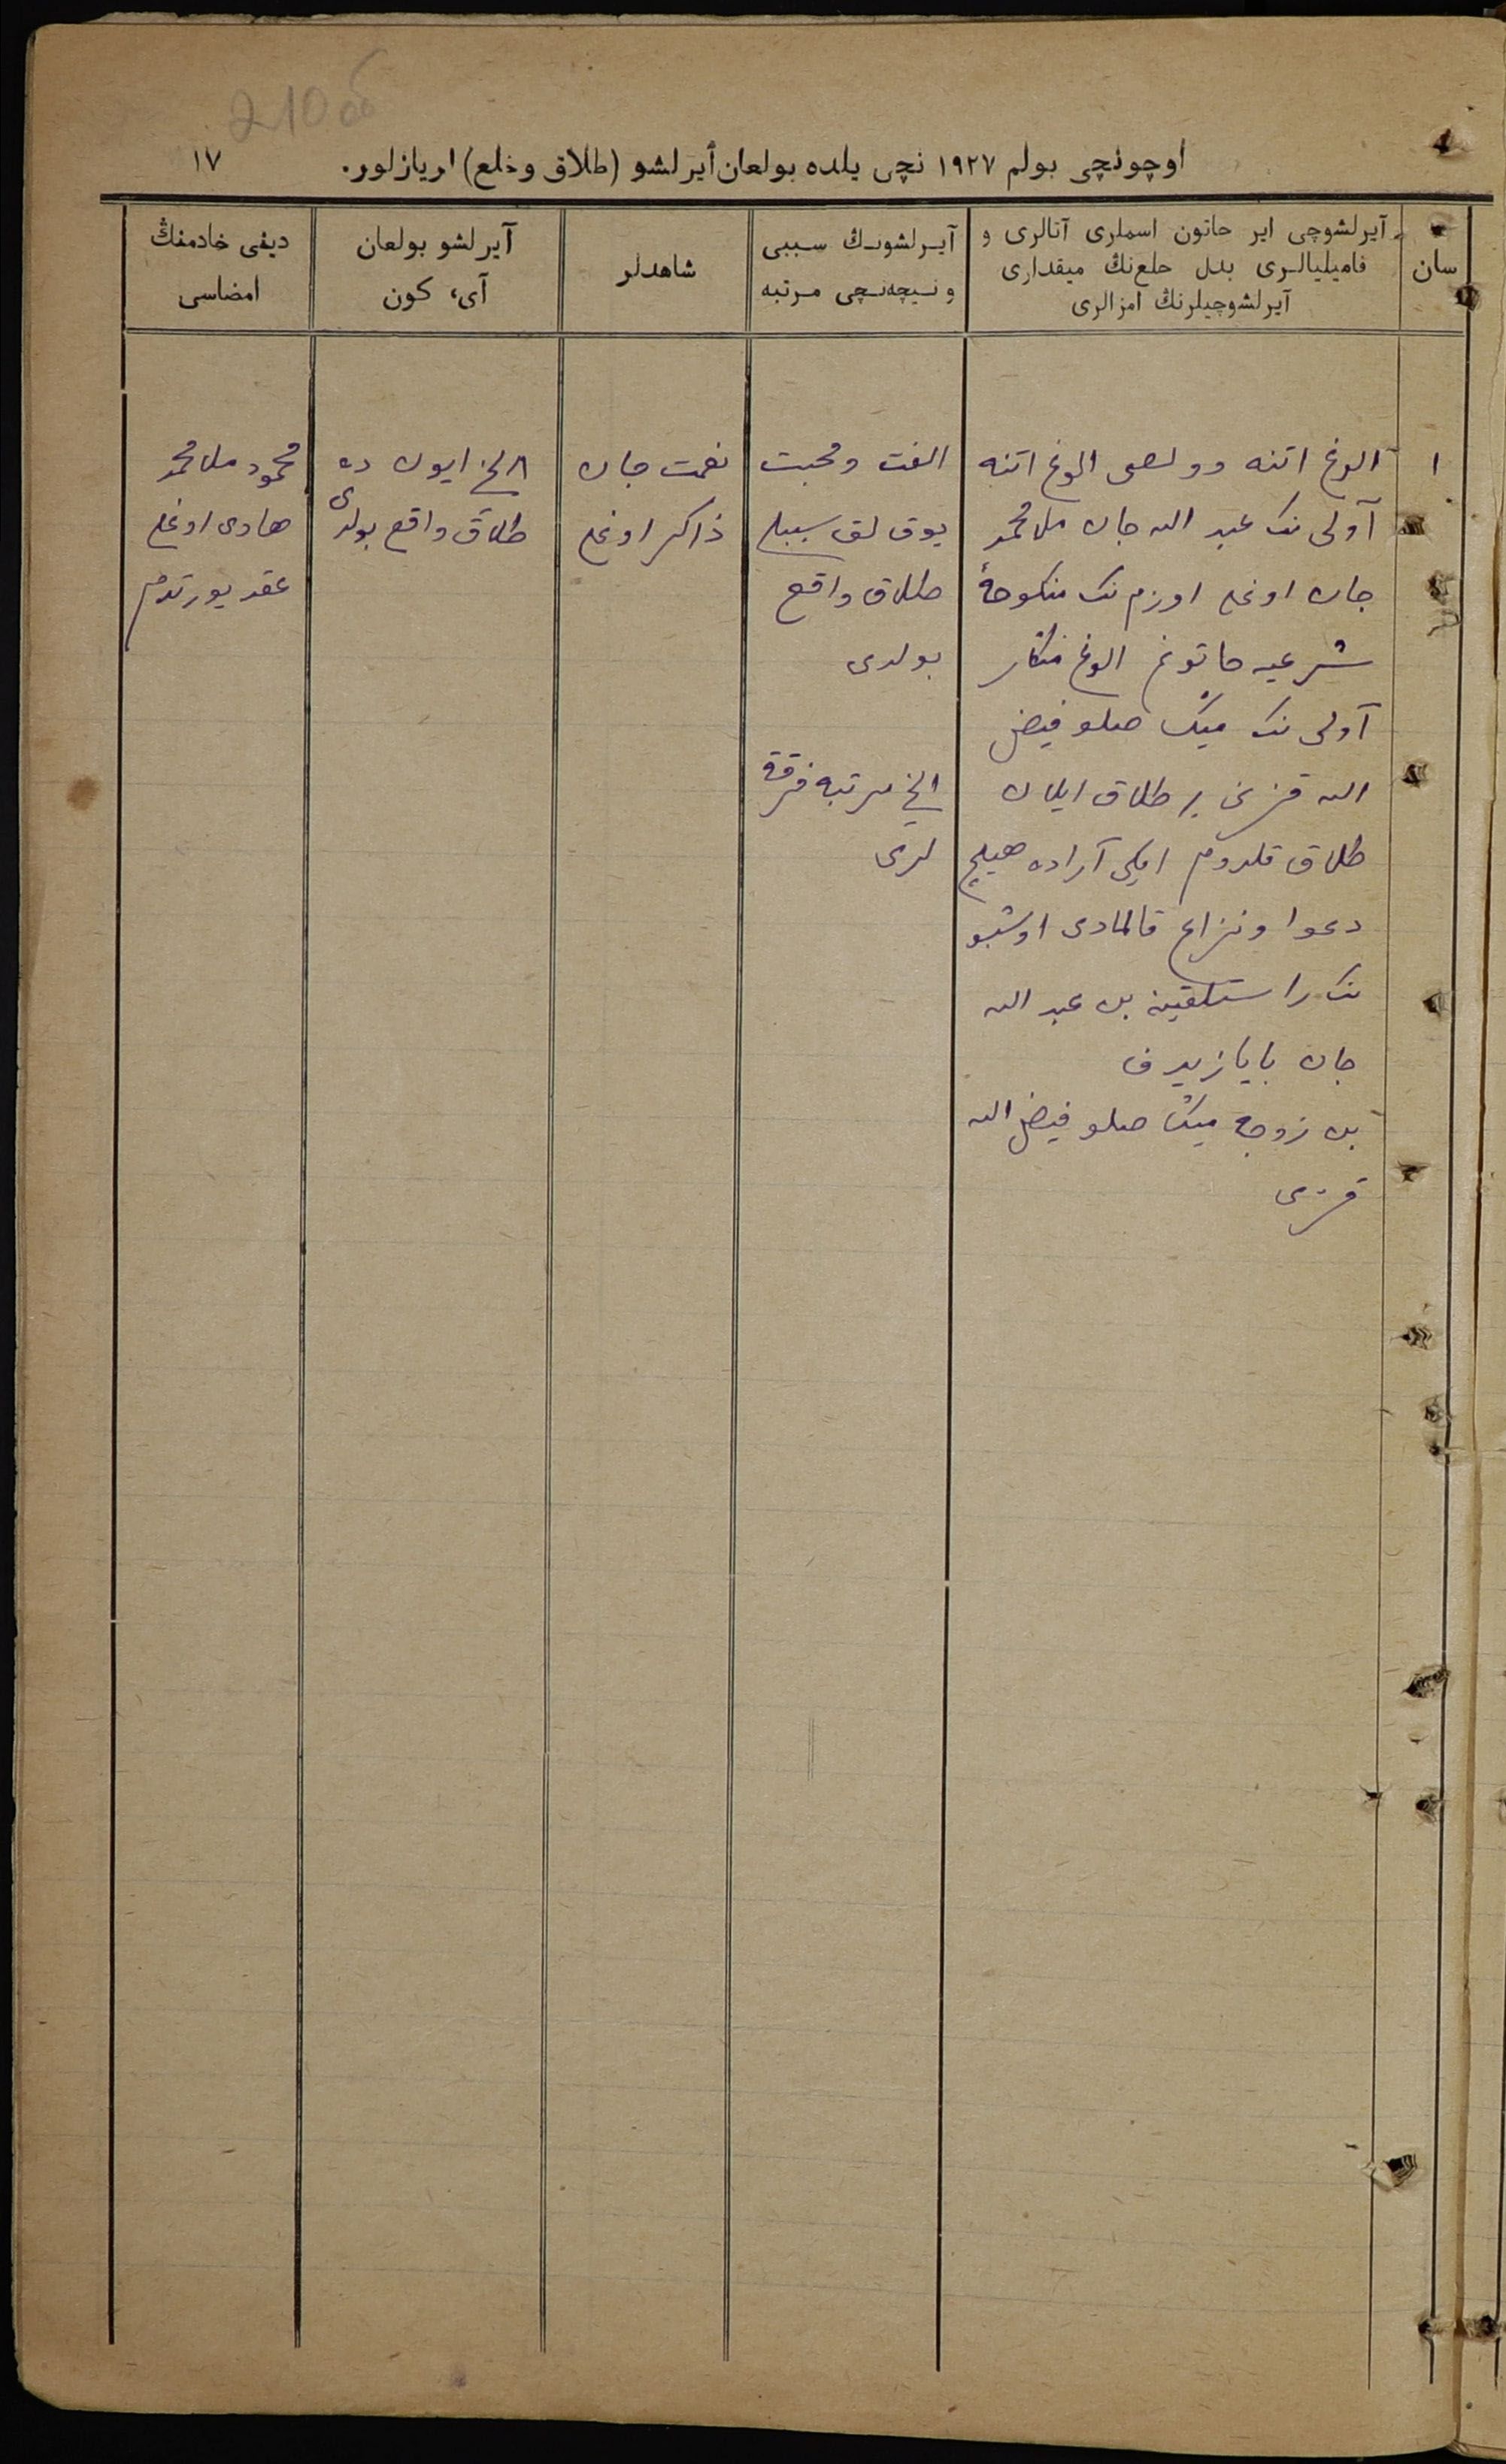 210 об
اوچونچی بولم ۱۹۲۷ نچی یلده بولعان آیرلشو (طلاق وخلع) لریازلور.
۱۷
سان
آیرلشوچی ایر حاتون اسملری آتالری و
فامیلیالـری بدل حلع‌نڭ میقداری
آیرلشوچیلرنڭ امزالری
آیـرلشونـڭ سـببی
و نـیچه‌نـچی مـرتبه
شاهدلر
آیرلشو بولعان
آی، کون
دینی خادمنڭ
امضاسی
۱
الوغ اتنه وولصی الوغ اتنه
آولی ننک عبد الله جان ملا محمد
جان اوغلی اوزم ننک منکوحهٔ
شرعیه حاتونم الوغ منکار
آولی ننک مینک صلو فیض
الله قزینی بر طلاق ایلان
طلاق قلدوم ایکی آراده هیچ
دعوا ونزاع قالمادی اوشبو
ننک راستلقینه بن عبد الله
جان بایازیدف
بن زوجه مینک صلو فیض الله
قزی
الفت ومحبت
یوق لق سببلی
طلاق واقع
بولدی
مرتبه فرقة
لری
نعمت جان
ذاکر اوغلی
۸ نچی ایون ده
طلاق واقع بولدی
محمود ملا محمد
هادی اوغلی
عقد یورتدم